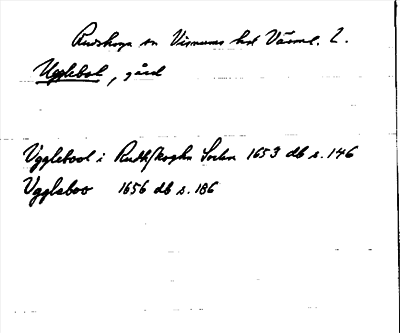 Rudskoga sn Visnums hd Värml. l.
Ugglebol, gård
Vgglebool i Rudhskogha Sochn 1653 db s. 146
Vgglaboo 1656 db s. 186